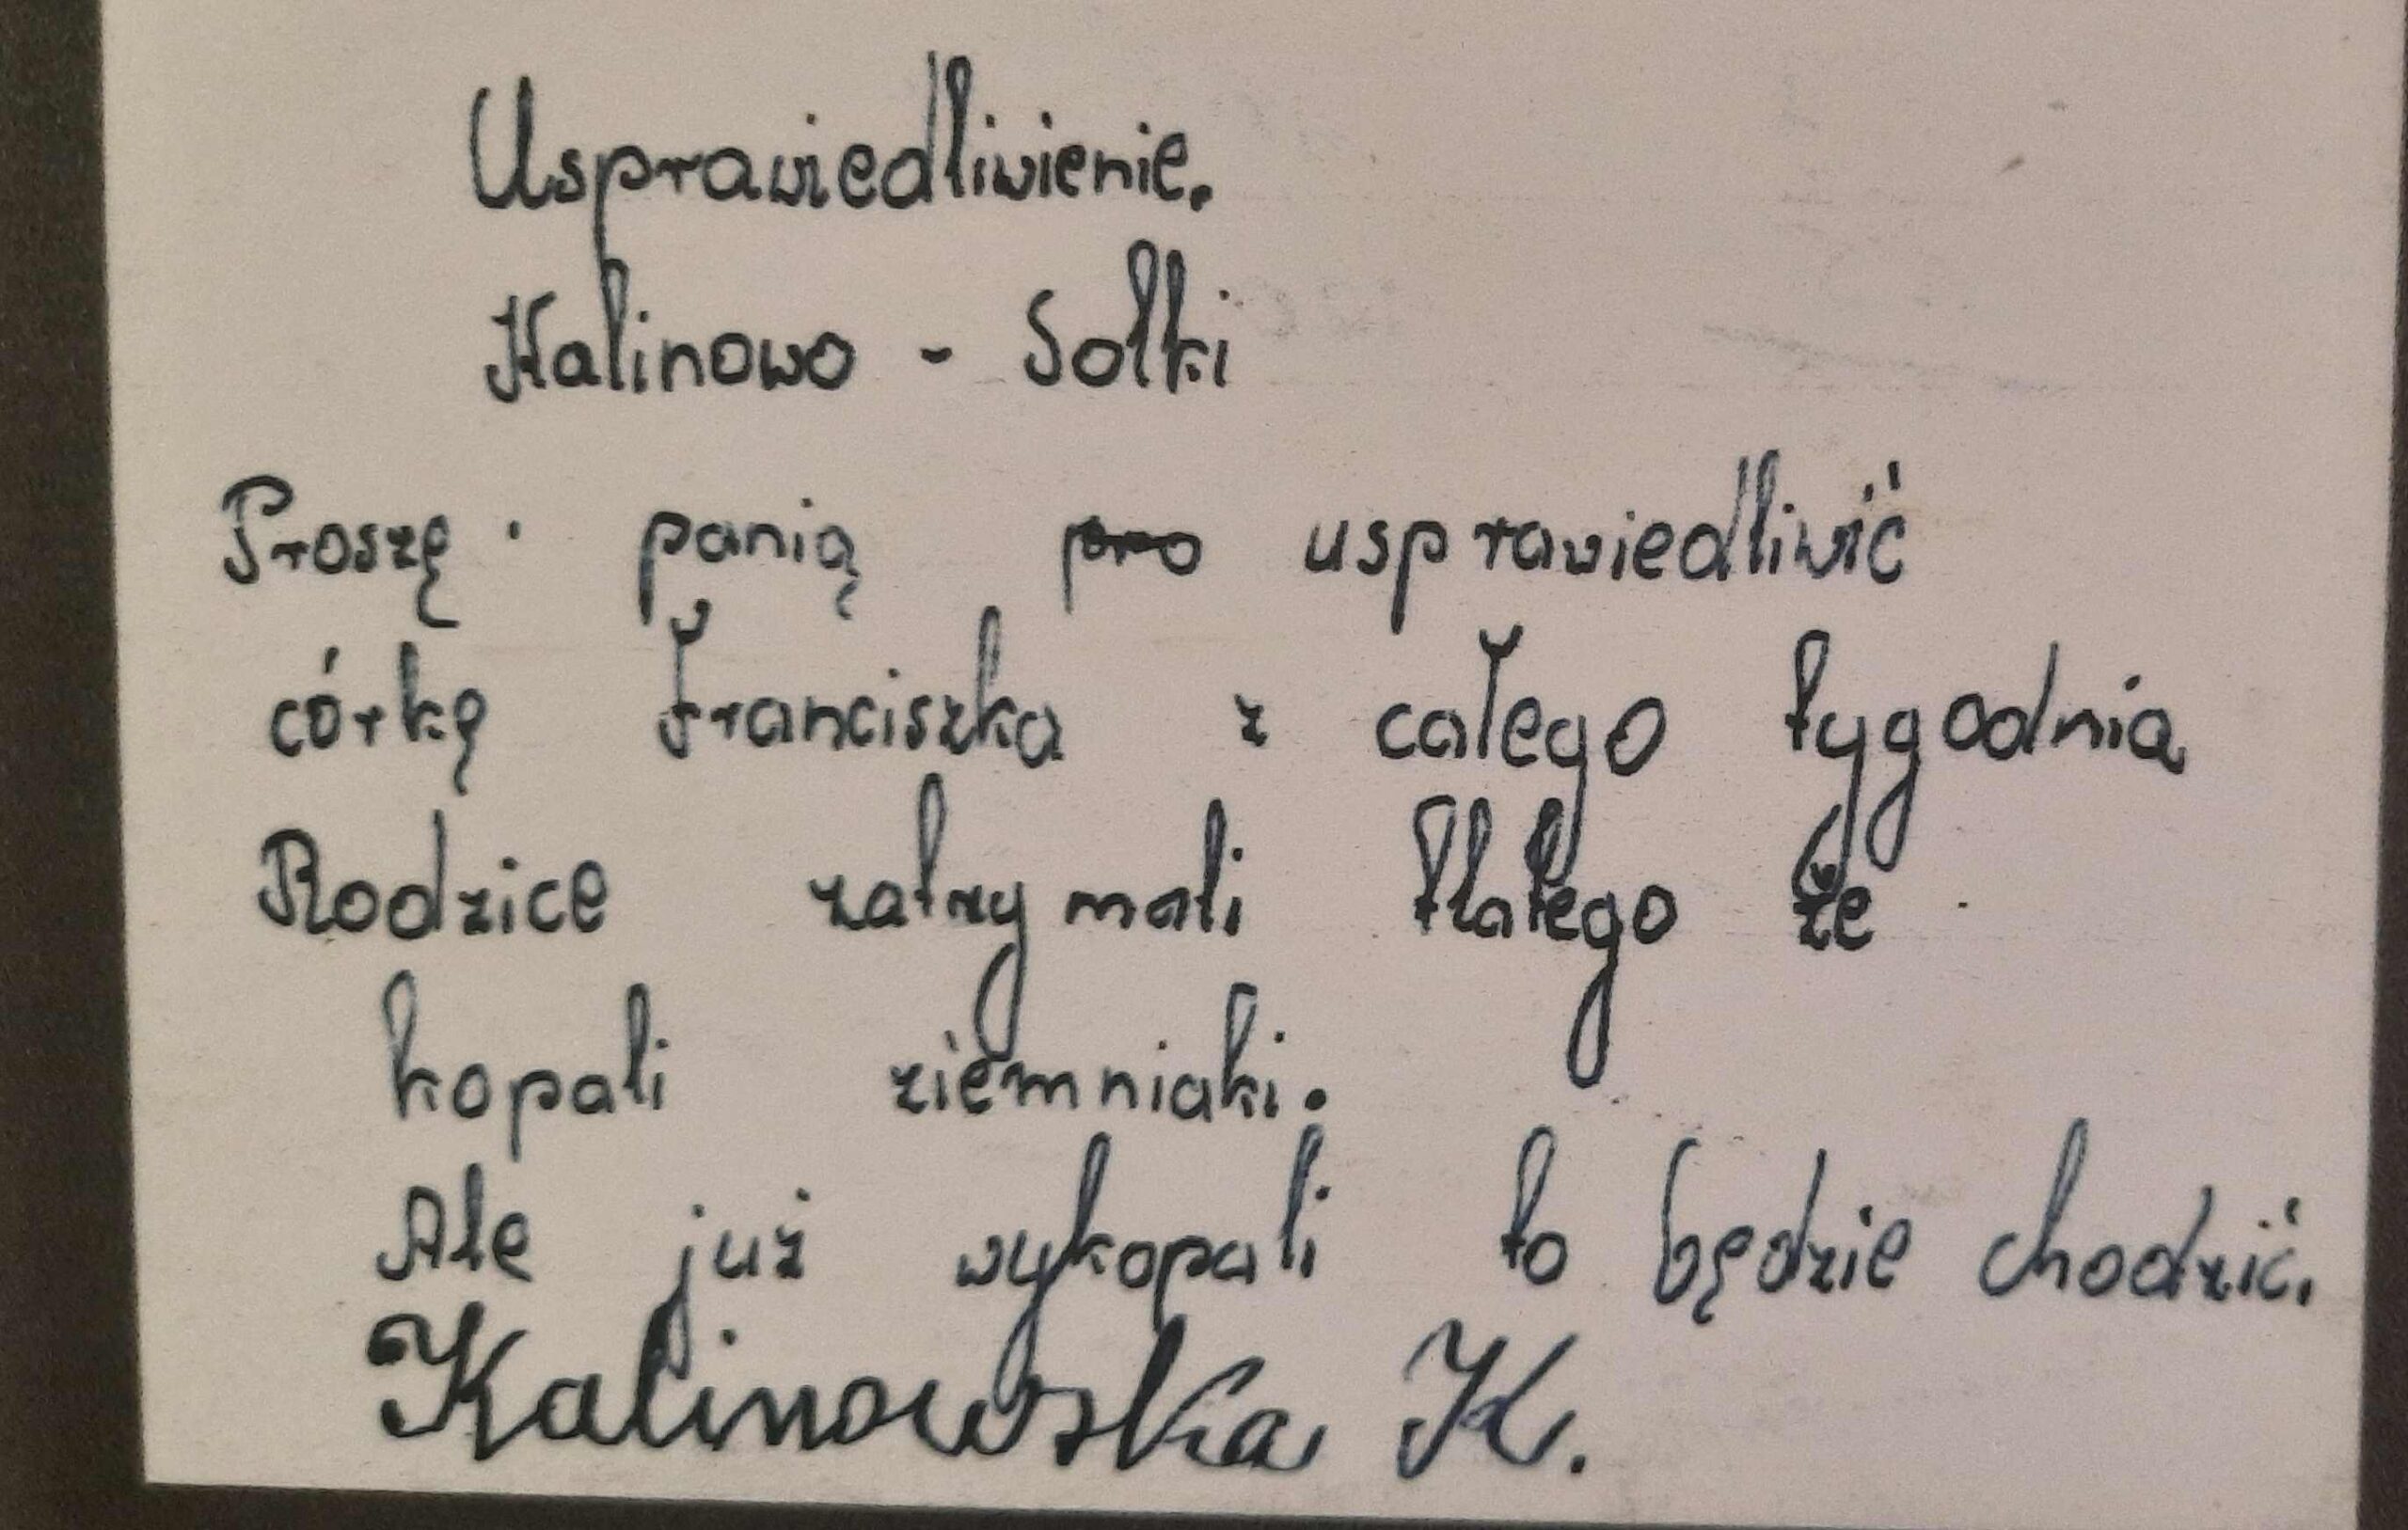 Usprawiedliwienie.
Kalinowo - Sołki
Proszę panią pro usprawiedliwić
córkę Franciszka z całego tygodnia
Rodzice zatrzymali tlatego że
kopali ziemniaki.
Ale już wykopali to będzie chodzić.
Kalinowska K.